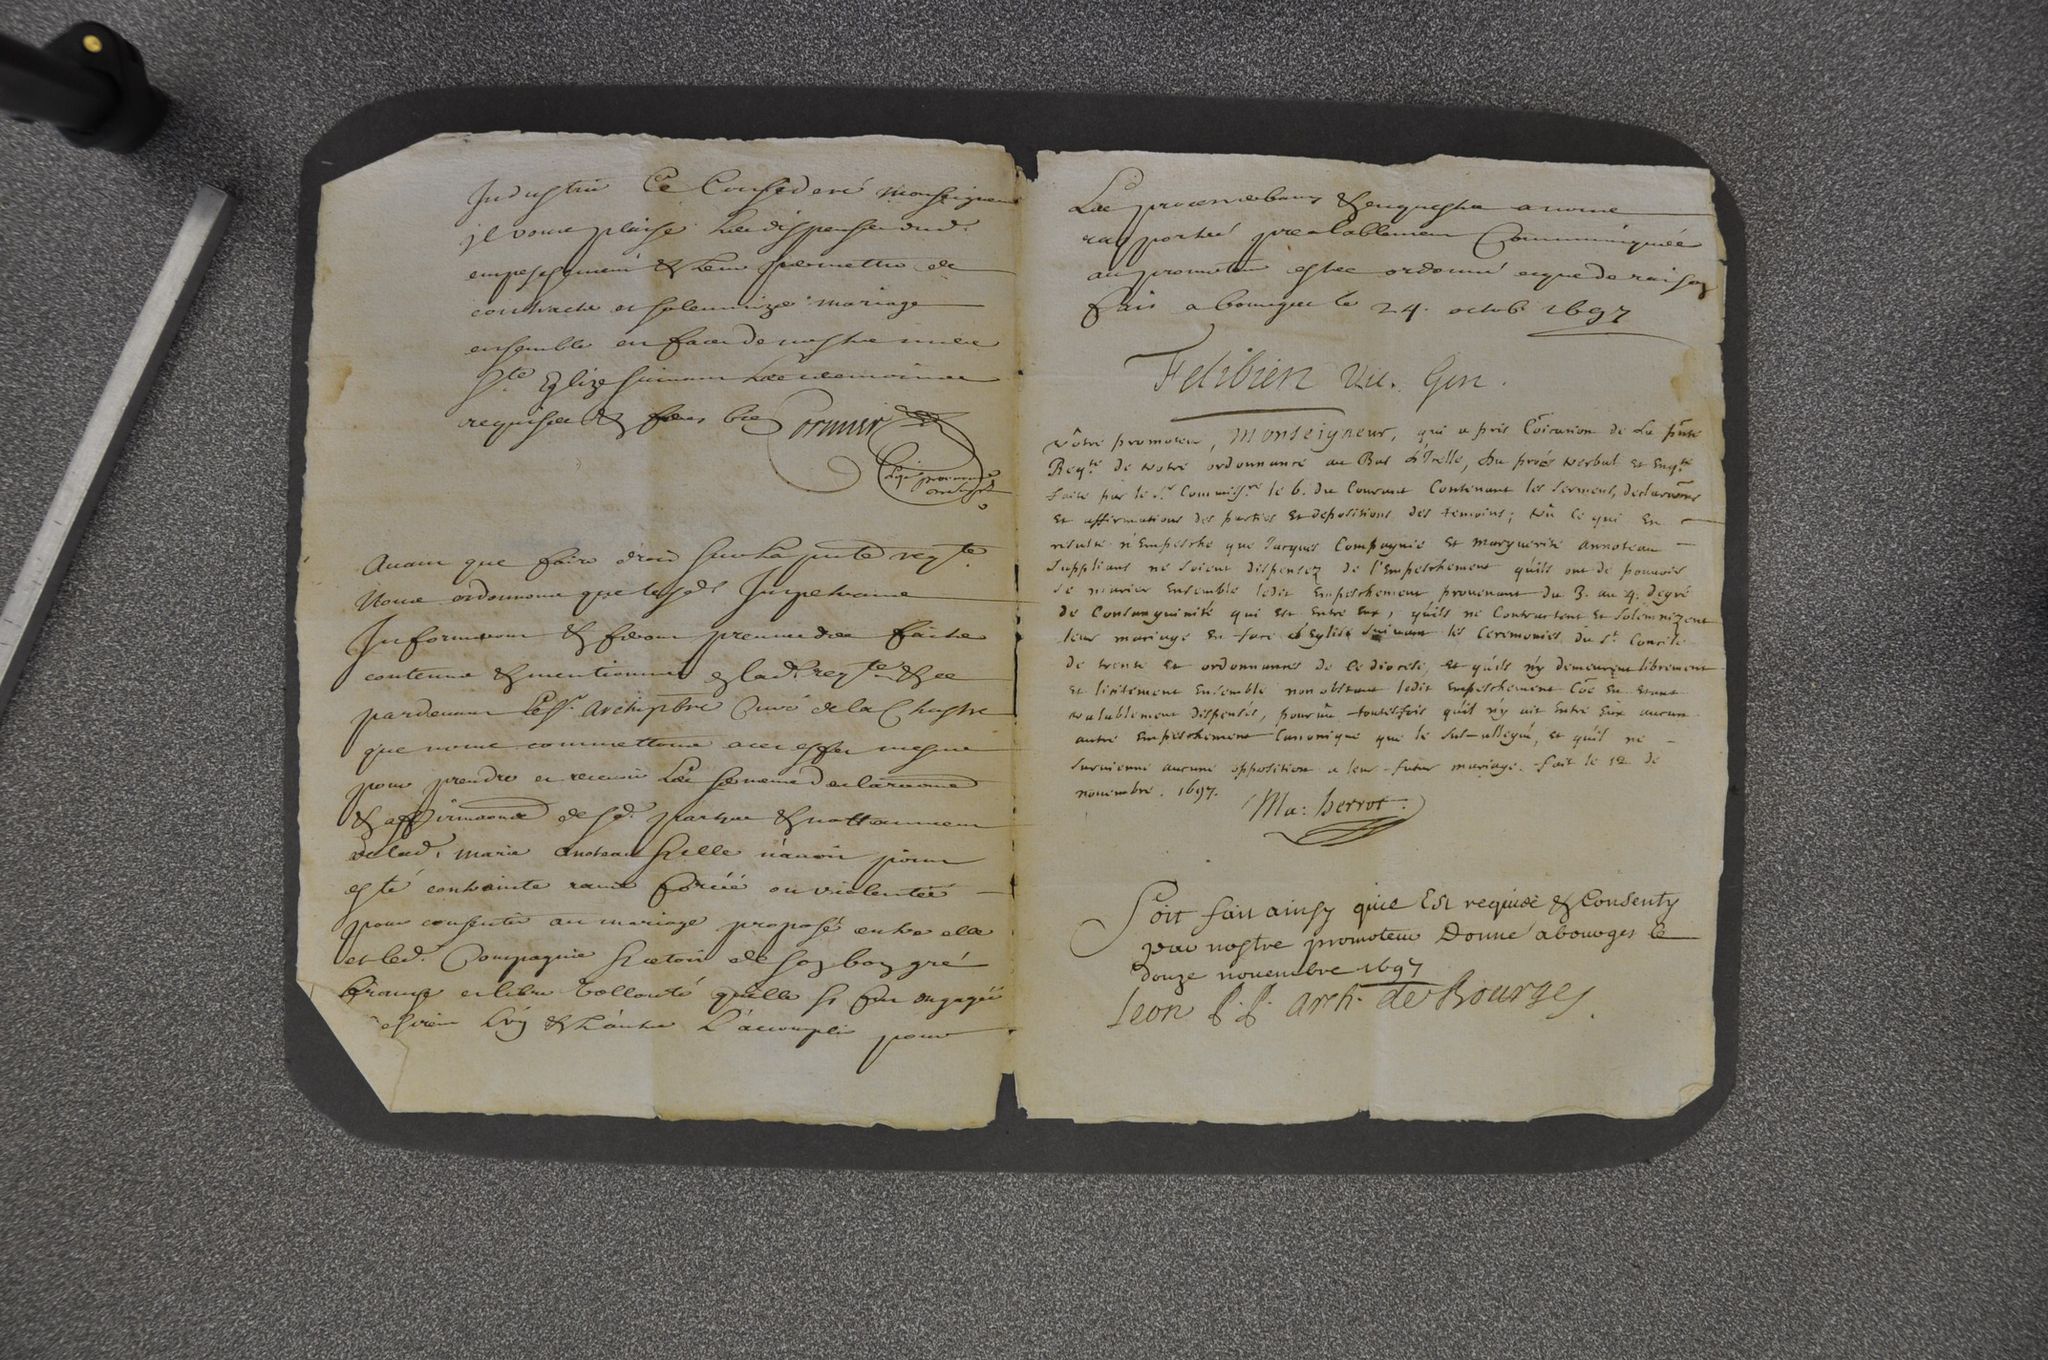 Industrie Ce Consideré Monseigneur
il vous plaise les dispenser dud.
empeschement & leur permettre de
contracter et solemnizer mariage
ensemble en face de nostre mere
Ste Eglize suivant les ceremonies
requises & feres bien Cormier
Avant que faire droit sur la pnte reqte
Nous ordonnons que lesds Impetrans
Informeront & feront preuve des faits
contenus & mentionnés en lad. reqte & ce
pardevant le Sr. Archiprbre Curé de la Chastre
que nous commettons a cet effet mesme
pour prendre et recevoir les serments declarations
& affirmations desd. parties & nottamment
de lad. Marie Anoteau si elle n'avoir point
esté contrainte ravie forcée ou violentée
pour consentir au mariage proposé entre elle
et led. Compagnie si c'etoit de son bon gré
franche et libre vollonté qu'elle si fut engagée
l'un & l'autre l'accomplir pour
Les proces verbaux & enqueste a nous
rapportés prealablement Communiquée
au promoteur estre ordonné ce que de raison
fait a bourges le 24. octob. 1697
Felibien Vic. Gen.
Vôtre promoteur, Monseigneur, qui a pris Coîcation de La pñte
Reqte de votre ordonnance au Bas d'Icelle, Du procés verbal et Enqte
faite par le Sr Commissre le 6. du Courant Contenant les serments, declarations
Et affirmations des parties Et depositions des temoins; Vû ce qui En
resulte n'Empesche que Jacques Compagnie Et Marguerite Annoteau
Supplians ne soient dispensez de l'Empeschement quils ont de pouvoir
se marier Ensemble ledit Empeschement provenant du 3. au 4. degré
de Consanguinité qui est Entre Eux, quils ne Contractent Et solemnizent
leur mariage En face d'Eglise suivant les Ceremonies du St. Concile
de trente Et ordonnances de Ce diocese, et quils n'y demeurent librement
Et licitement Ensemble nonobstant ledit Empeschement Côe En Etant
valablement dispensés, pourvû toutesfois quil n'y ait Entre Eux aucun
autre Empeschement Canonique que le sus-allegué, et qu'il ne
survienne aucune opposition a leur futur mariage. fait le 12 de
novembre. 1697.
Ma: herrot.
Soit fait ainsy quil Est requis & Consenty
par nostre promoteur Donné a bourges le
douze novembre 1697
Leon P. P. arch. de Bourges.